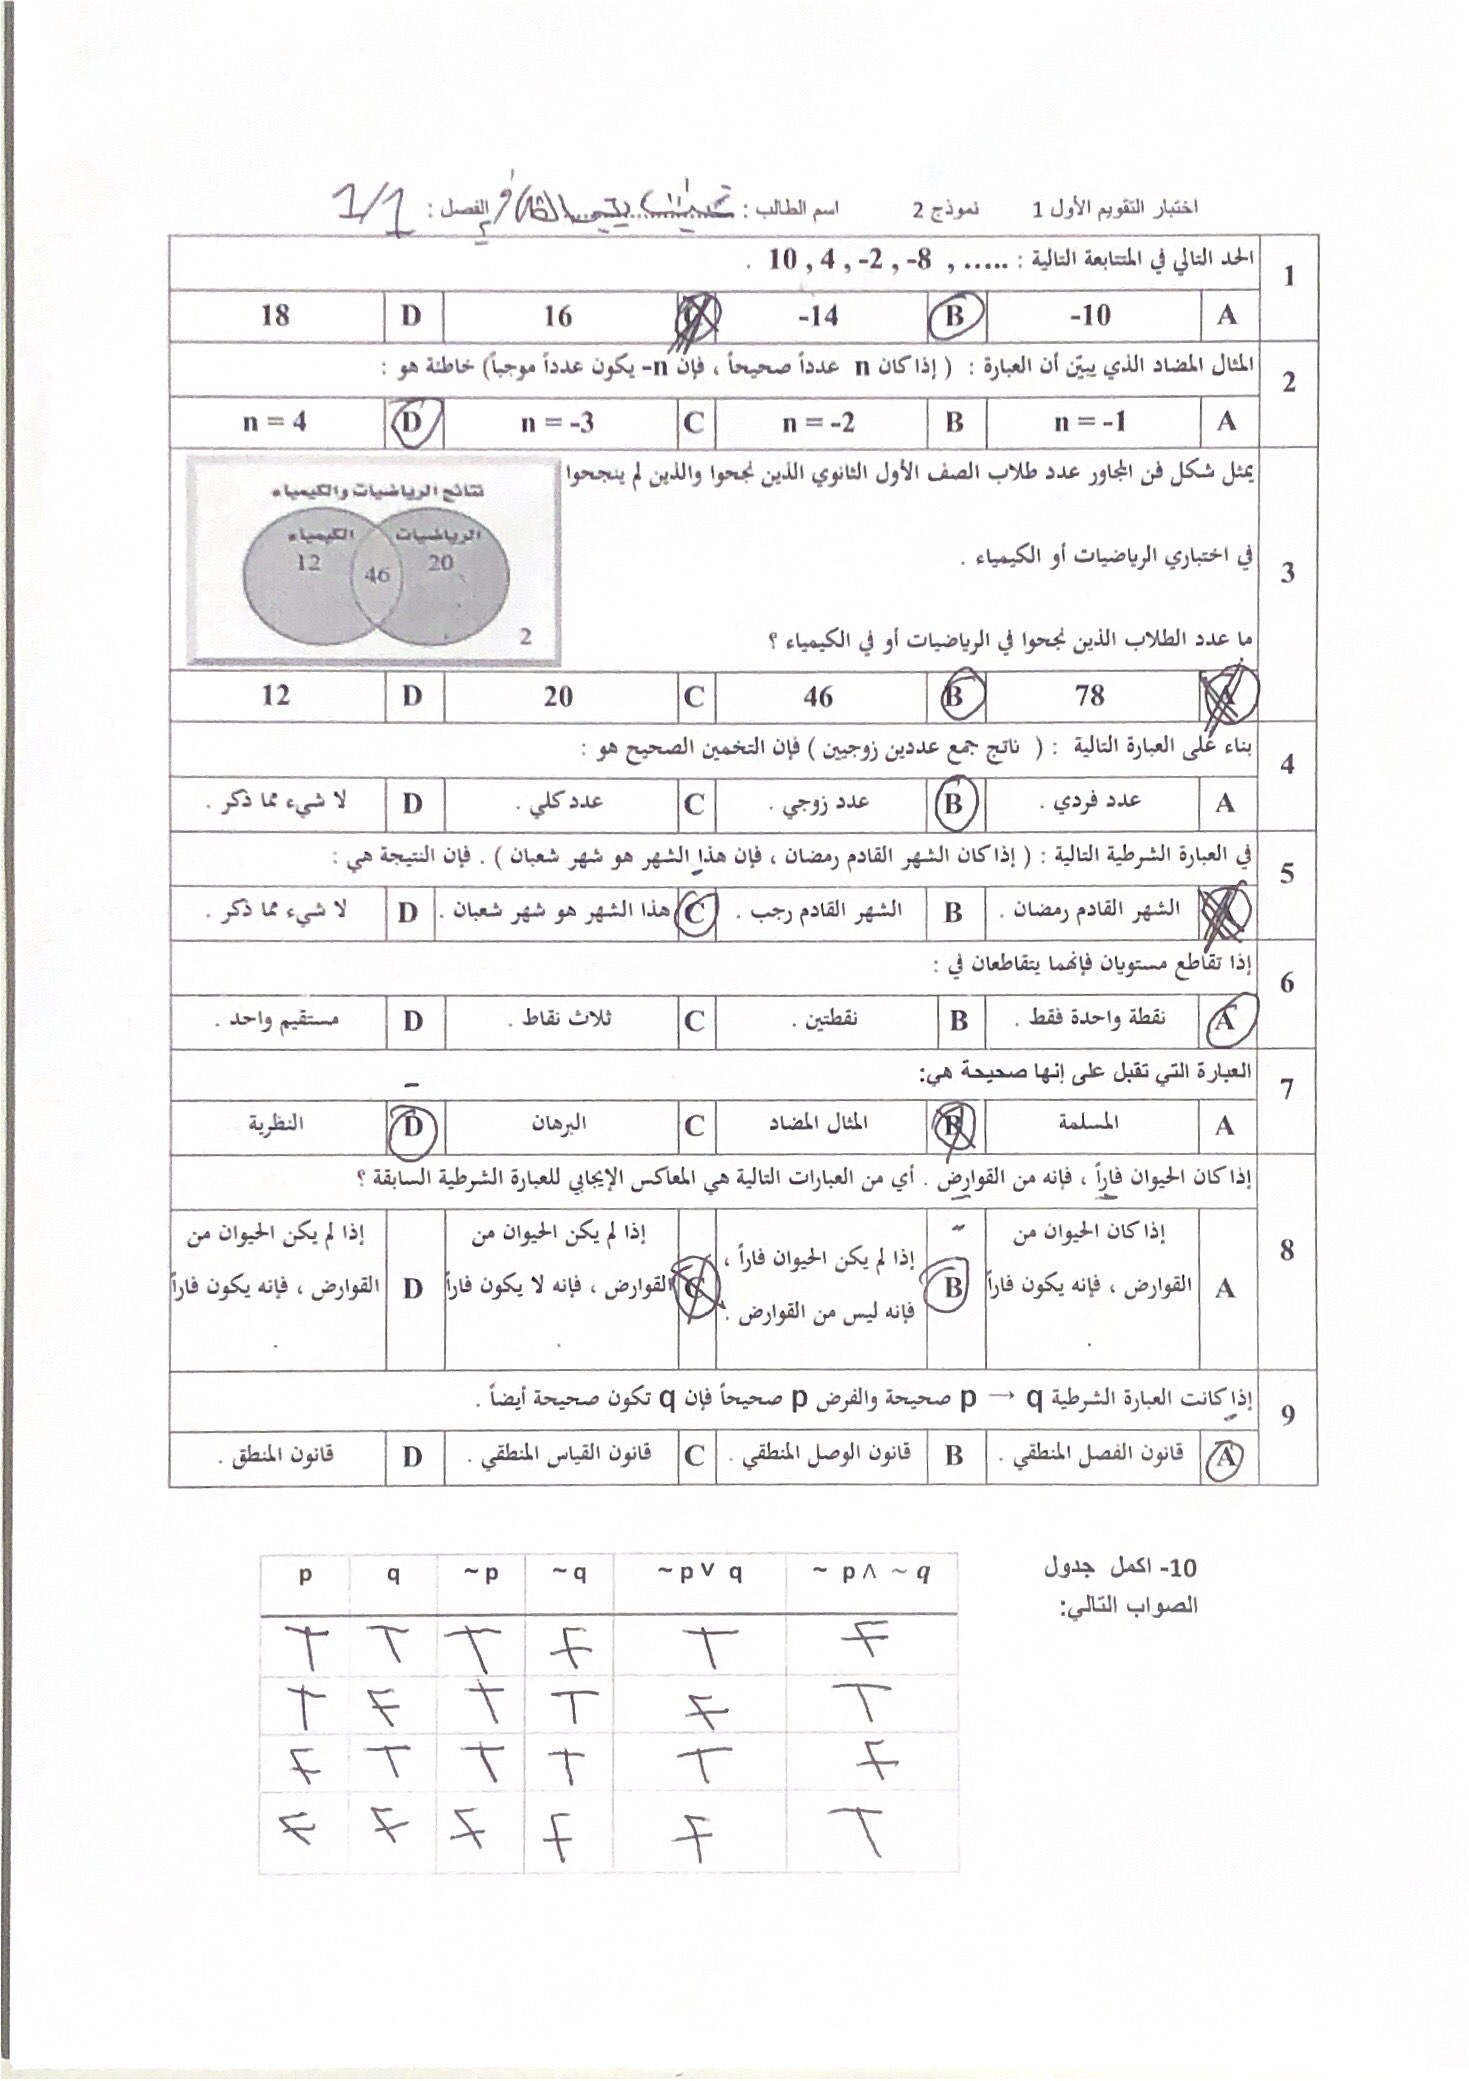 اختبار التقويم الأول 1 نموذج 2 اسم الطالب : الفصل : 1/1
1 الحد التالي في المتتابعة التالية : 10 , 4 , -2 , -8 , ..... .
A -10 B -14 C 16 D 18
2 المثال المضاد الذي يبيّن أن العبارة : ( إذا كان n عدداً صحيحاً ، فإن n- يكون عدداً موجباً) خاطئة هو :
A n = -1 B n = -2 C n = -3 D n = 4
3 يمثل شكل فن المجاور عدد طلاب الصف الأول الثانوي الذين نجحوا والذين لم ينجحوا
في اختباري الرياضيات أو الكيمياء .
ما عدد الطلاب الذين نجحوا في الرياضيات أو في الكيمياء ؟
نتائج الرياضيات والكيمياء
الرياضيات الكيمياء
20 46 12
2
A 78 B 46 C 20 D 12
4 بناء على العبارة التالية : ( ناتج جمع عددين زوجيين ) فإن التخمين الصحيح هو :
A عدد فردي . B عدد زوجي . C عدد كلي . D لا شيء مما ذكر .
5 في العبارة الشرطية التالية : ( إذا كان الشهر القادم رمضان ، فإن هذا الشهر هو شهر شعبان ) . فإن النتيجة هي :
الشهر القادم رمضان . B الشهر القادم رجب . C هذا الشهر هو شهر شعبان . D لا شيء مما ذكر .
6 إذا تقاطع مستويان فإنهما يتقاطعان في :
A نقطة واحدة فقط . B نقطتين . C ثلاث نقاط . D مستقيم واحد .
7 العبارة التي تقبل على إنها صحيحة هي:
A المسلمة B المثال المضاد C البرهان D النظرية
8 إذا كان الحيوان فاراً ، فإنه من القوارض . أي من العبارات التالية هي المعاكس الإيجابي للعبارة الشرطية السابقة ؟
A إذا كان الحيوان من القوارض ، فإنه يكون فاراً .
B إذا لم يكن الحيوان فاراً ، فإنه ليس من القوارض .
C إذا لم يكن الحيوان من القوارض ، فإنه لا يكون فاراً .
D إذا لم يكن الحيوان من القوارض ، فإنه يكون فاراً .
9 إذا كانت العبارة الشرطية p → q صحيحة والفرض p صحيحاً فإن q تكون صحيحة أيضاً .
A قانون الفصل المنطقي . B قانون الوصل المنطقي . C قانون القياس المنطقي . D قانون المنطق .
10- اكمل جدول
الصواب التالي:
p q ~p ~q ~p∨ q ~ p∧ ~q
T T T F T F
T F T T F T
F T T T T F
F F F F F T